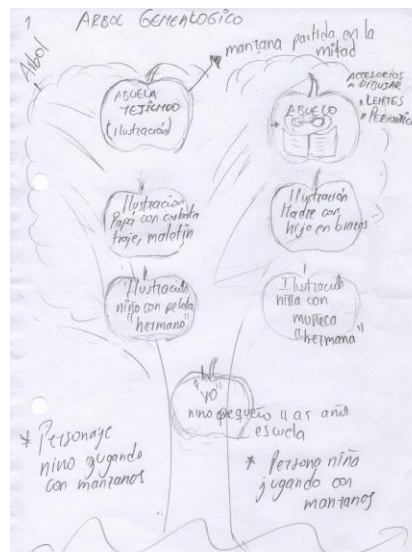 1 ARBOL GENEALOGICO
Arbol
manzana partida en la
mitad
ABUELA
TEJIENDO
(ilustración)
ABUELO
ACCESORIOS
A DIBUJAR
* LENTES
* PERIODICO
Ilustración
Papá con corbata
traje, maletín
Ilustración
Madre con
hijo en brazos
Ilustración
niño con pelota
"hermano"
Ilustración
niña con
muñeca
"hermana"
"YO"
nino pequeño 4 a 5 años
escuela
* Personaje
nino jugando
con manzanas
* Persona niña
jugando con
manzanas